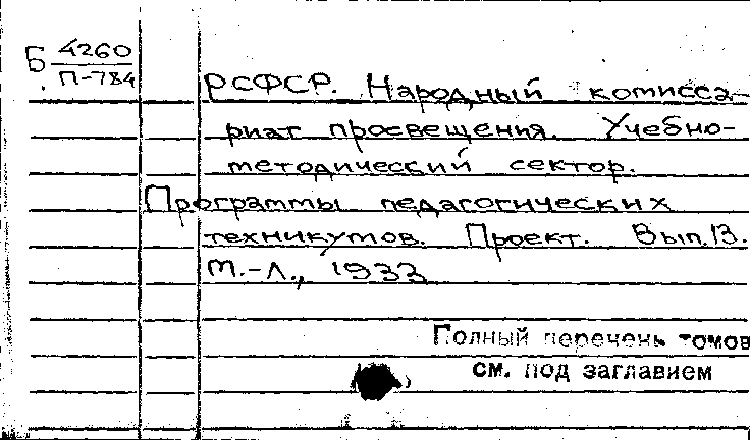 Б 4260
П-784
РСФСР. Народный комисса-
риат просвещения. Учебно-
методический сектор.
Программы педагогических
техникумов. Проект. Вып. 13.
М.-Л., 1933
Полный перечень томов
см. под заглавием